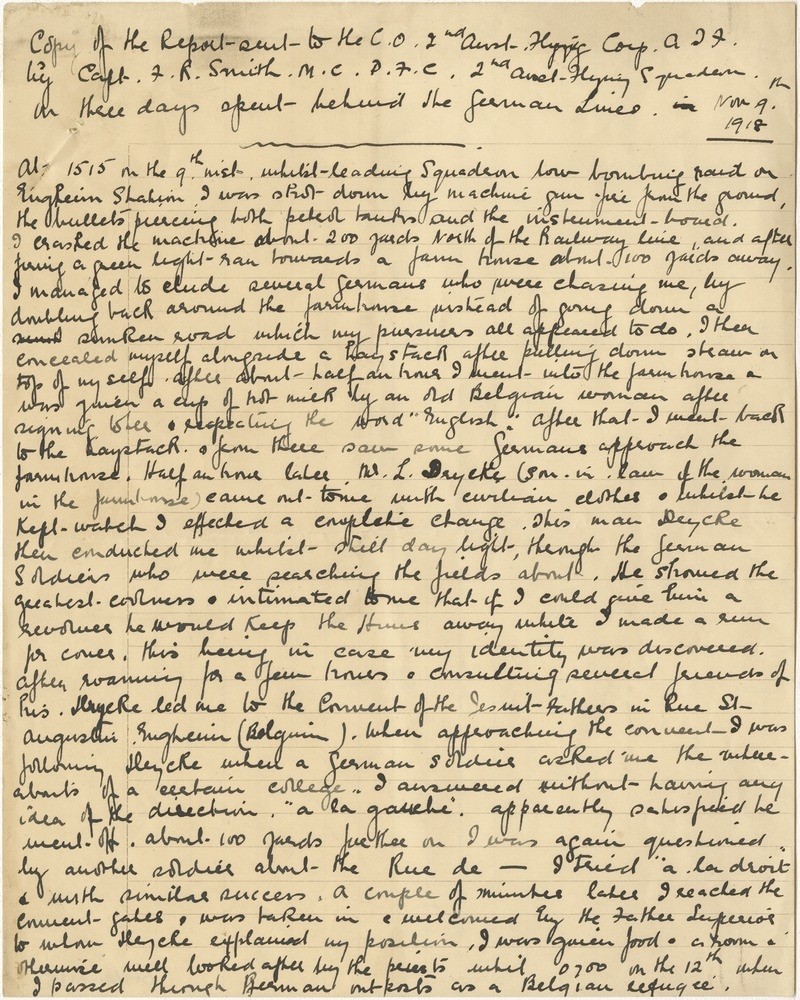 Copy of the Report sent to the C.O. 2nd Aust. Flying Corp. A I F.
by Capt. F. R. Smith. M.C. D.F.C. 2nd Aust Flying Squadron.
on three days spent behind the German Lines. in Nov 9th
1918
At 1515 on the 9th inst. whilst leading Squadron low bombing raid on
Enghein Station I was shot down by machine gun fire from the ground,
the bullets piercing both petrol tanks and the instrument board.
I crashed the machine about 200 yards North of the Railway line, and after
firing a green light ran towards a farm house about 100 yards away.
I managed to elude several Germans who were chasing me, by
doubling back around the farmhouse instead of going down a
sunken road which my pursuers all appeared to do. I then
concealed myself alongside a haystack after pulling down straw on
top of myself. After about half an hour I went into the farmhouse &
was given a cup of hot milk by an old Belgian woman after
signing to her & repeating the word "English". after that I went back
to the haystack. & from there saw some Germans approach the
farmhouse. Half an hour later Mr. L. Deycke (son-in-law of the woman
in the farmhouse) came out to me with civilian clothes & whilst he
kept watch I effected a complete change. This man Deycke
then conducted me whilst still day light, through the German
Soldiers who were searching the fields about. He showed the
greatest coolness & intimated to me that if I could give him a
revolver he would keep the Huns away while I made a run
for cover, this being in case my identity was discovered.
After roaming for a few hours & consulting several friends of
his. Deycke led me to the Convent of the Jesuit Fathers in Rue St
Augustin Enghein (Belguin). When approaching the convent I was
following Deycke when a German soldier asked me the where-
abouts of a certain college. I answered without having any
idea of the direction. "a la gauche". apparently satisfied he
went off. about 100 yards further on I was again questioned
by another soldier about the Rue de — I tried "a la droit
& with similar success. A couple of minutes later I reached the
convent gates & was taken in & welcomed by the Father Superior
to whom Deycke explained my position, I was given food & a room &
otherwise well looked after by the priests until 0700 on the 12th when
I passed through German outposts as a Belgian refugee.